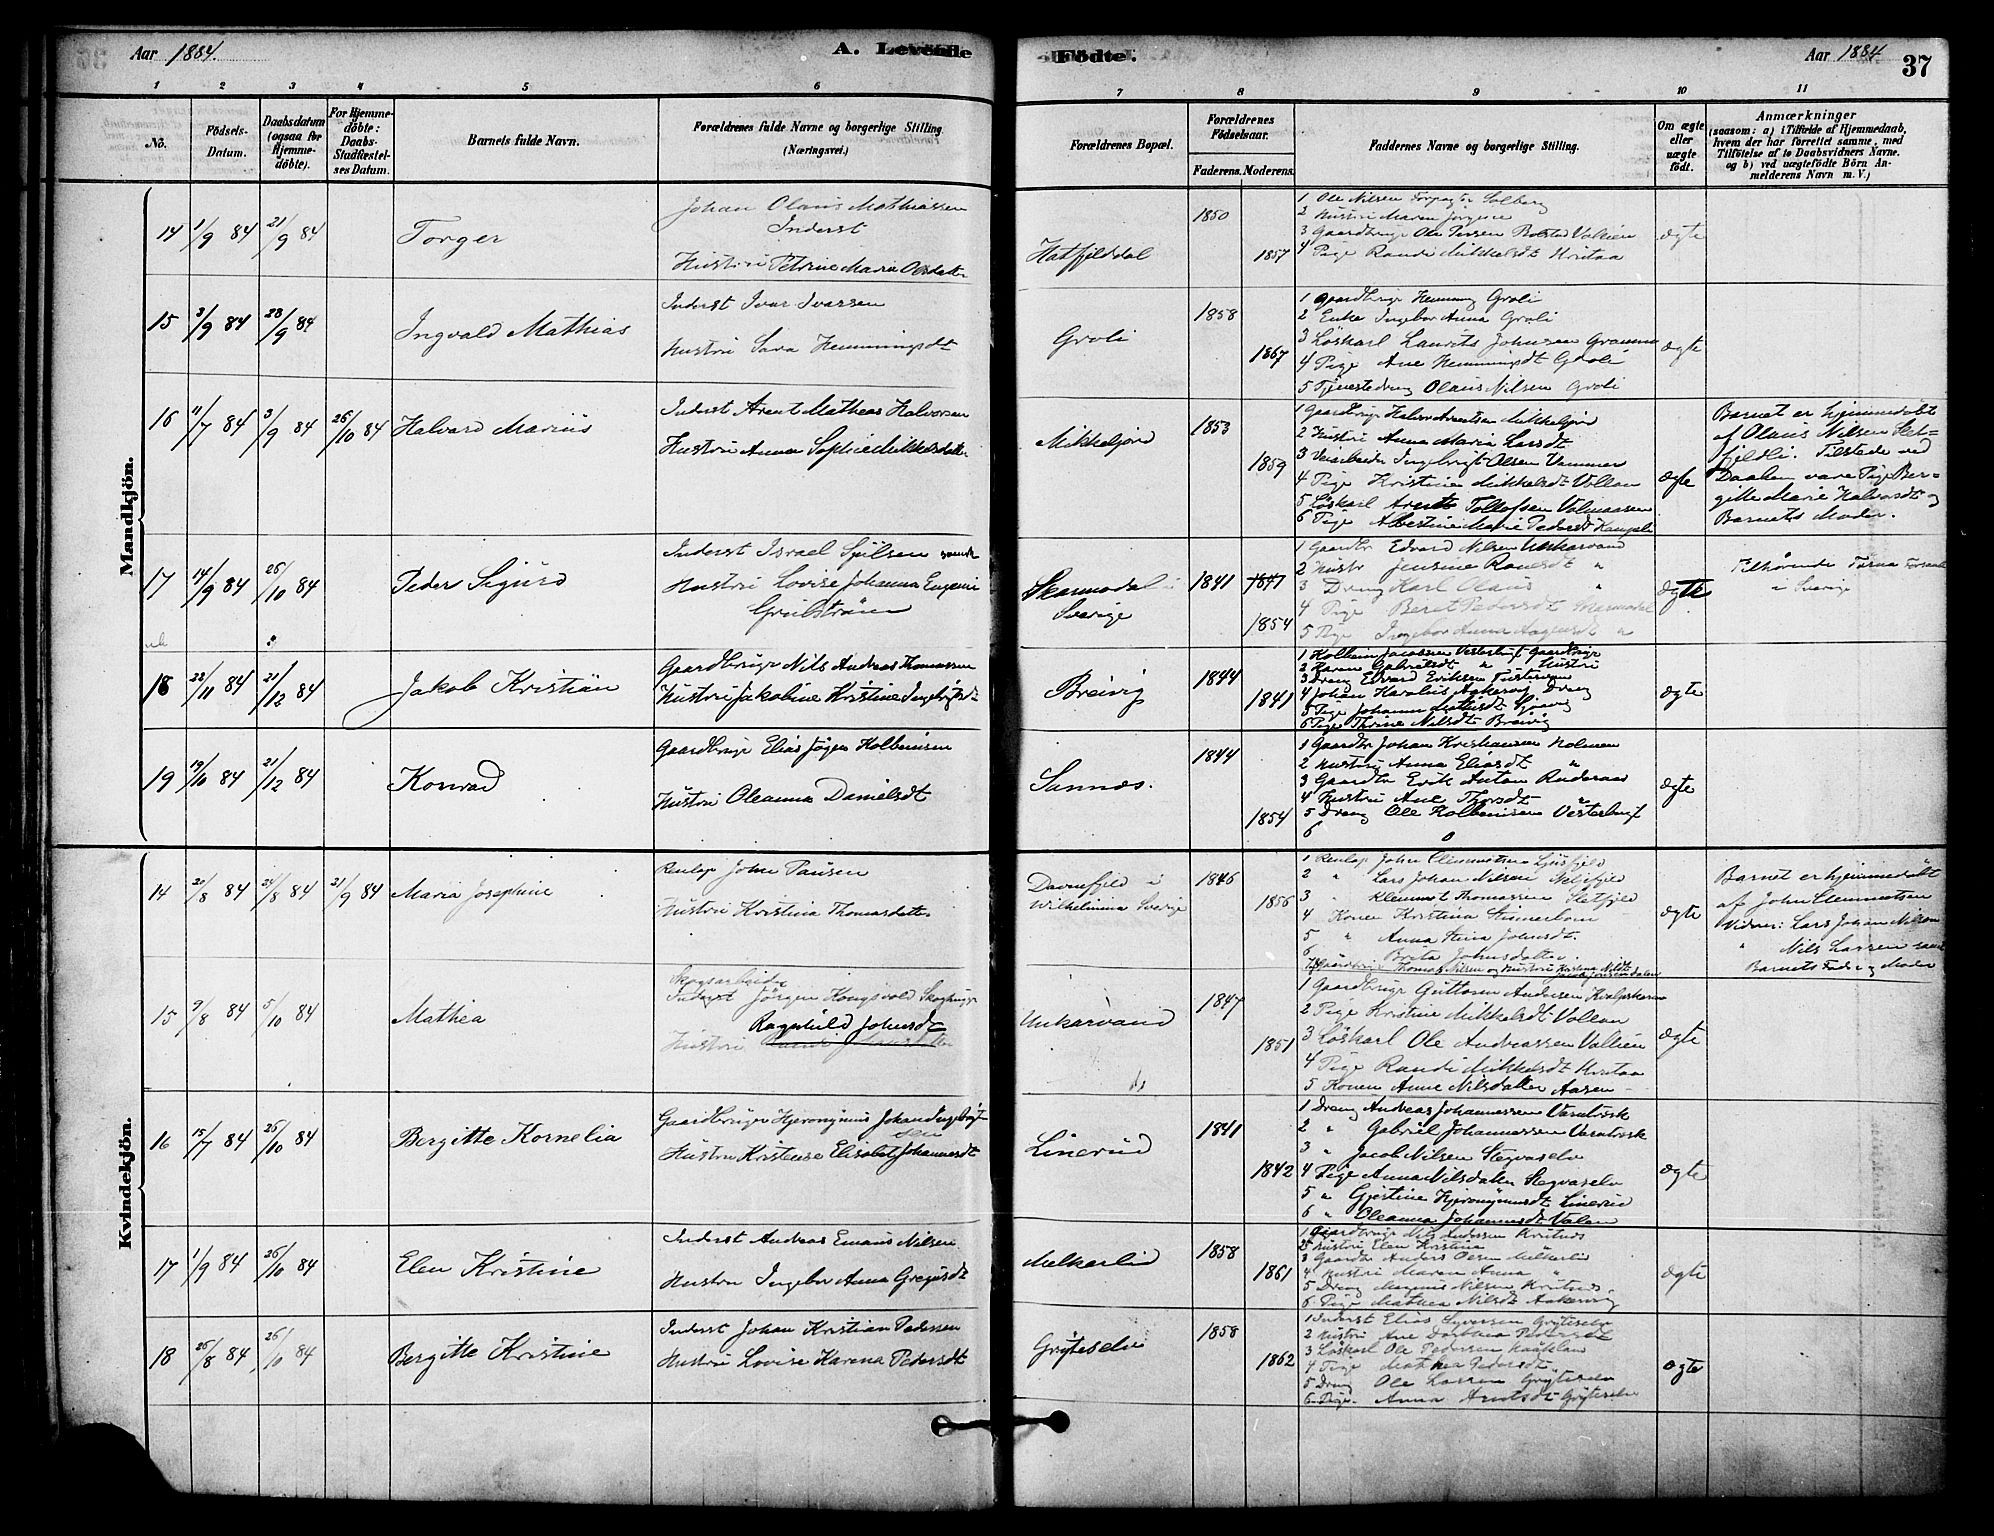 Aar 1884.
A. Levende
Fødte.
Aar 1884
37
1 2 3 4 5 6 7 8 9 10 11
No.
Födsels-
Datum.
Daabsdatum
(ogsaa for
Hjemme-
döbte).
For Hjemme-
döbte:
Daabs-
Stadfæstel-
ses Datum.
Barnets fulde Navn.
Forældrenes fulde Navne og borgerlige Stilling.
(Næringsvei.)
Forældrenes Bopæl.
Forældrenes
Födselsaar.
Faderens. Moderens.
Faddernes Navne og borgerlige Stilling.
Om ægte
eller
uægte
födt.
Anmærkninger
(saasom: a) i Tilfælde af Hjemmedaab,
hvem der har forrettet samme, med
Tilföielse af to Daabsvidners Navne,
og b) ved uægtefödte Börn An-
melderens Navn m. V.)
Mandkjön.
14 1/9 84 21/9 84
Torger
Johan Olaus Mathiassen
Inderst
Hustru Petrine Maria Olsdatter
Hatfjelddal
1850
1857
1 Ole Nilsen Forpagter Solberg
2 Hustru Maren Jørgine
3 Gaardbruger Ole Vollien
4 Pige Randi Mikkelsdt Kritaa
ægte
15 3/9 84 28/9 84
Ingvald Mathias
Inderst Ivar Ivarsen
Hustru Sara Hemmingsdt
Groli
1858
1867
1 Gaardbruger Hemming Groli
2 Enke Ingebor Anna Groli
3 Løskarl Laurits Johnsen
4 Pige Ane Hemmingsdt Groli
5 Tjenestedreng Olaus Nilsen Groli
ægte
16 11/7 84 3/9 84 26/10 84
Halvard Marius
Inderst Arent Mathias Halvorsen
Hustru Anna Sophie Mikkelsdatter
Mikkeljord
1853
1859
1 Gaardbruger Halvor Arentsen Mikkeljord
2 Hustru Anna Maria Larsdt
3 Veiarbeider Ingebrigt Olsen
4 Pige Kristine Mikkelsdt Vollan
5 Løskarl Arnt Tollofsen
6 Pige Albertine Marie Pedersdt
ægte
Barnet er hjemmedøbt
af Olaus Nilsen Slet-
fjeldli. Tilstede ved
Daaben vare Pige Ber-
gitte Marie Halvorsdt og
Barnets Moder.
17 14/9 84 26/10 84
Peder Sigurd
Inderst Israel Sjulsen
Hustru Lovise Johanna Eugenie
Grubstrøm
Skarmodal i
Sverige
1841 1847
1854
1 Gaardbr Edvard Nilsen Unkarvand
2 Hustr Jensine "
3 Dreng Karl Olaus "
4 Pige Beret Pedersdt Skarmodal
5 Pige Ingebor Anna "
ægte
Tilhørende Tärna
i Sverige
18 28/11 84 21/12 84
Jakob Kristian
Gaardbruger Nils Andreas Thomassen
Hustru Jakobine Kristine Ingebrigtsdt
Breivig
1844
1841
1 Jacobsen Vesterbugt Gaardbruger
2 Karen Gabrielsdt " Hustru
3 Dreng Edvard Eriksen
4 Johan Karolius Aakervig. Dreng
5 Pige Johanna
6 Pige Thrine Nilsdt Breivig
ægte
19 19/10 84 21/12 84
Konrad
Gaardbruger Elias Jøgen Kolbeinsen
Hustru Oleanna Danielsdt
Sannes.
1844
1854
1 Gaardbr Johan Kristiansen Holmen
2 Hustru Anna Eliasdt "
3 Gaardbr Erik Anton
4 Hustru Ane Thorsdt "
5 Dreng Ole Kolbeinsen Vesterbugt
6 0
ægte
Kvindekjön.
14 20/8 84 24/8 84 21/9 84
Maria Josephine
Renlap John Paulsen
Hustru Kristina Thomasdatter
Daunefjeld i
Wilhelmina Sverige
1846
1856
1 Renlap John Clemmetsen
2 " Lars Johan Nilsen
3 " Klemmet Thomassen Sletfjeld
4 Konen Kristina
5 " Anna Stina Johnsdt.
6 Brita Johnsdatter
7 Gaardbruger Thomas Nilsen og Hustru
ægte
Barnet er hjemmedøbt
af John Clemmetsen
Vidner: Lars Johan Nilsen
" Nils Larsen samt
Barnets Fader og Moder
15 9/8 84 5/10 84
Mathea
Skogsarbeider
Inderst Jörgen Kongsvold
Ragnhild Johnsdt
Hustru
Unkarvand
1847
1851
1 Gaardbruger Guttorm Andersen
2 Pige Kristine Mikkelsdt Vollan
3 Løskarl Ole Andreassen Vollien
4 Pige Randi Mikkelsdt Kritaa
5 Konen Anne Nilsdatter Aasen
ægte
16 15/7 84 26/10 84
Bergitte Kornelia
Gaardbruger Hjeronymus Johan Ingebrigt-
sen
Hustru Kristense Elisabet Johannesdt
Linerud
1841
1842
1 Dreng Andreas Johannessen
2 " Gabriel Johannessen
3 " Jacob Nilsen Stegvaselv
4 Pige Anna Nilsdatter Stegvaselv
5 " Gjertine Hjeronymusdt Linerud
6 " Oleanna Johannesdt
ægte
17 1/9 84 26/10 84
Elen Kristine
Inderst Andreas Emaus Nilsen
Hustru Ingebor Anna Gregusdt
Melkarlid
1858
1861
1 Gaardbruger Nils Andersen
2 Hustru Elen Kristina
3 Gaardbr Anders Olsen Melkarlid
4 Hustru Maren Anna "
5 Dreng Magnus Nilsen
6 Pige Mathea Nilsdt Aakervig
ægte
18 26/8 84 26/10 84
Bergitte Kristine
Inderst Johan Kristian Pedersen
Hustru Lovise Karena Pedersdt
Grøteselv
1858
1862
1 Inderst Elias Syversen Grøteselv
2 Hustru Ane Dorthea Pedersdt
3 Løskarl Ole Pedersen
4 Pige Mathea Pedersdt
5 Dreng Ole Larsen Grøteselv
6 Pige Anna Arntsdt Grøteselv
ægte